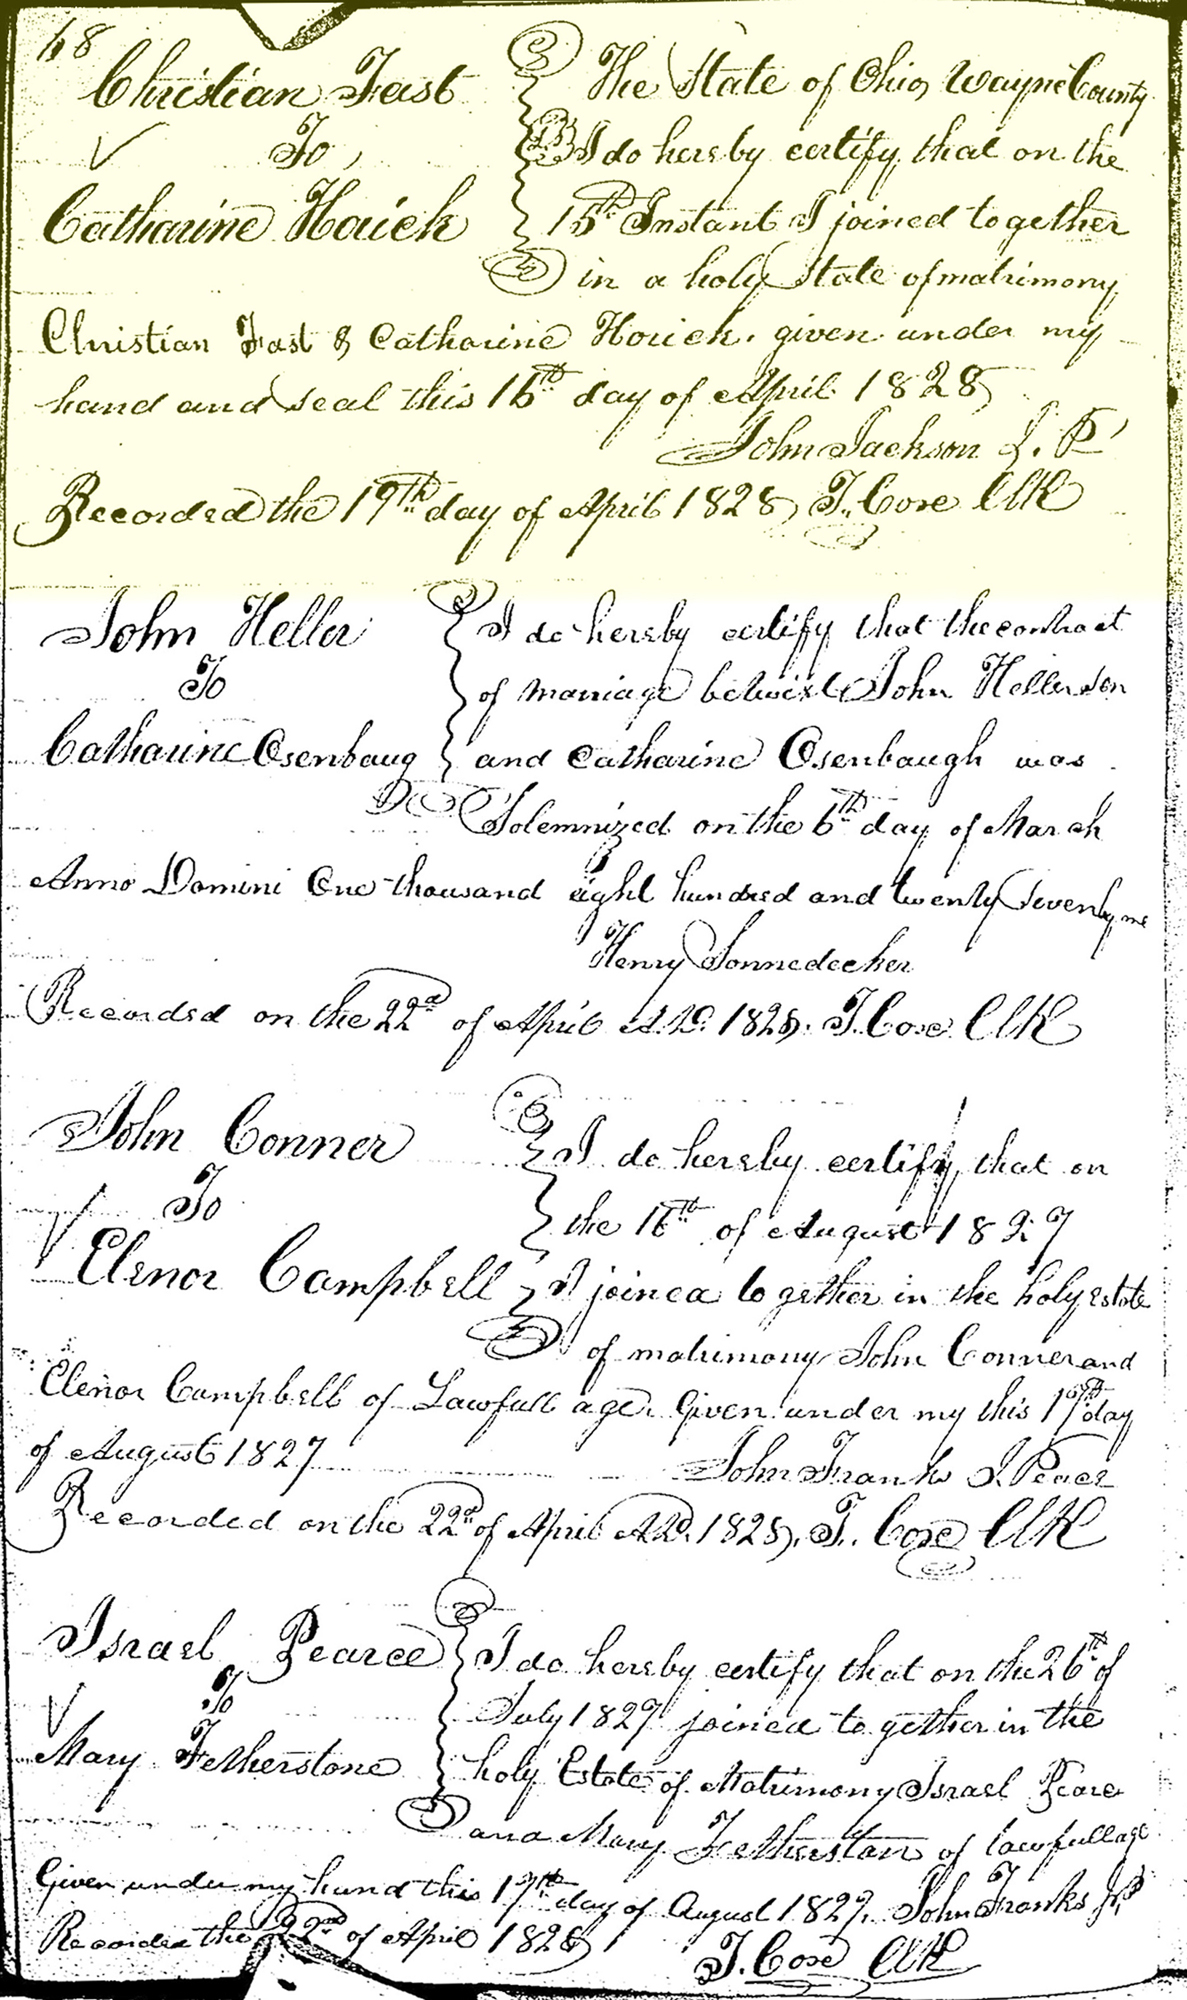 68
Christian Fast
To
Catharine Houick
The State of Ohio, Wayne County
I do hereby certify that on the
15th Instant I joined together
in a holy State of matrimony
Christian Fast & Catharine Houick. given under my
hand and seal this 16th day of April 1828
John Jackson J. P
Recorded the 19th day of April 1828, T. Coxe Clk
John Heller
To
Catharine Osenbaug
I do hereby certify that the contract
of marriage betwixt John Heller Sen
and Catharine Osenbaugh was
Solemnized on the 6th day of March
Anno Domini One thousand eight hundred and twenty Seven by me
Henry Sonnedecker
Recorded on the 22d of April A.D. 1828. T. Coxe Clk
John Conner
To
Elenor Campbell
I do hereby certify, that on
the 16th of August 1827
I joined together in the holy estate
of matrimony John Conner and
Elenor Campbell of Lawfull age. Given under my this 17th day
of August 1827
John Franks J. Peace
Recorded on the 22d of April A.D. 1828, T. Coxe Clk
Israel Pearce
To
Mary Fetherstone
I do hereby certify that on the 26th of
July 1827 joined together in the
holy Estate of Matrimony Israel Pearce
and Mary Fetherstan of lawfull age
Given under my hand this 17th day of August 1827. John Franks JP
Recorded the 22nd of April 1828
T. Coxe Clk